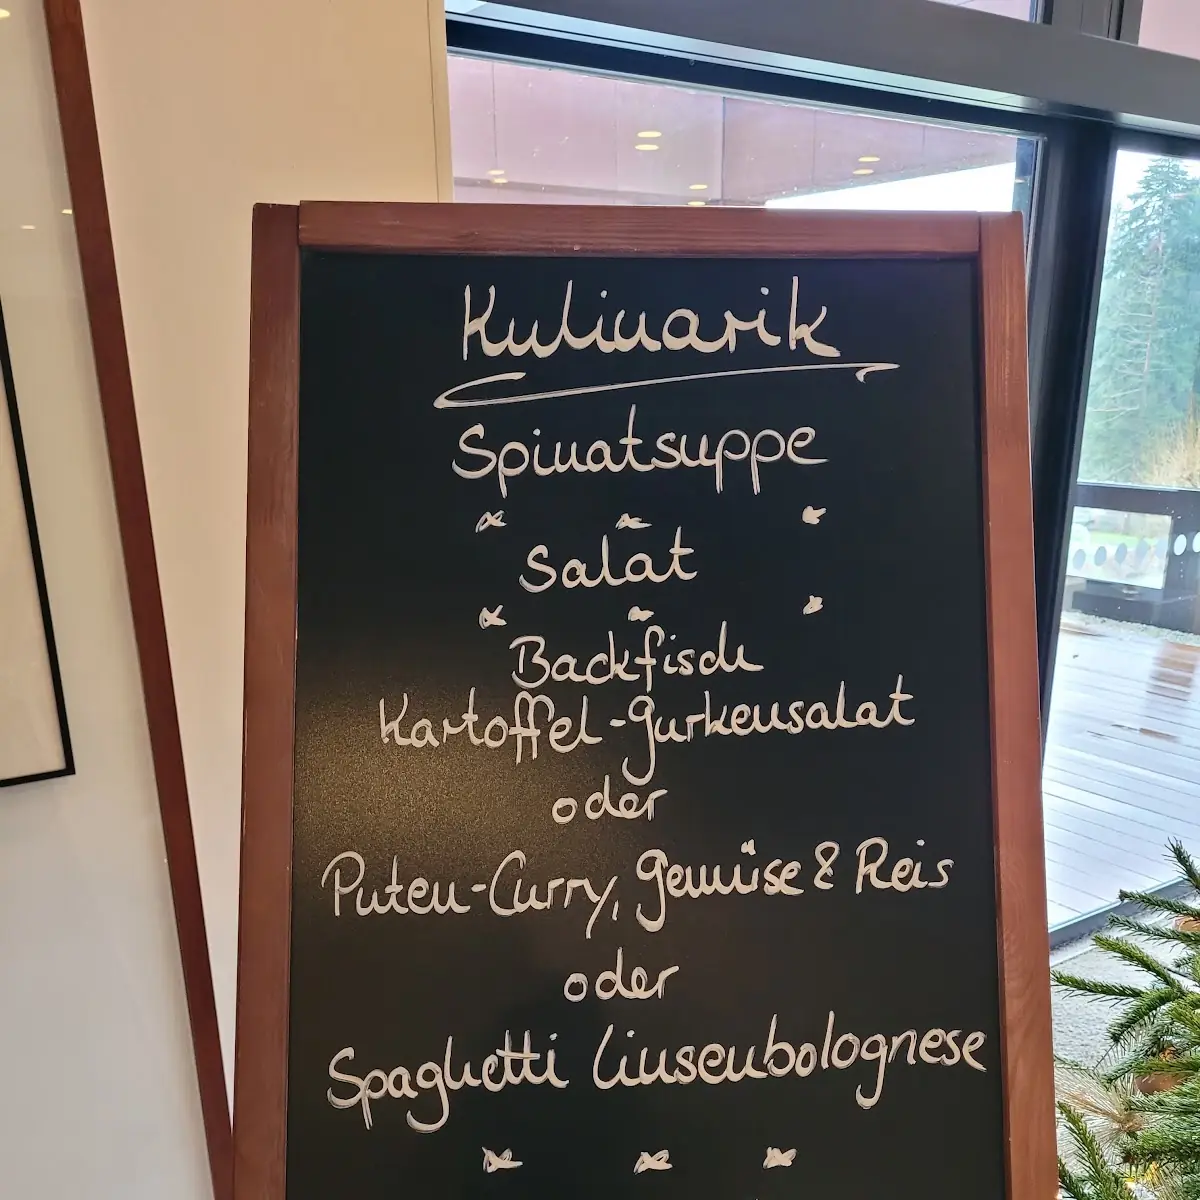 Kulinarik
Spinatsuppe
Salat
Backfisch
Kartoffel-Gurkensalat
oder
Puten-Curry, Gemüse & Reis
oder
Spaghetti Linsenbolognese